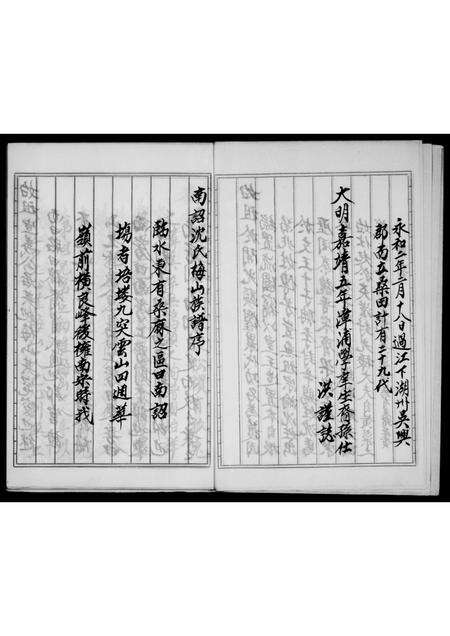 永和二年二月十八日過江下湖州吳興
郡南立桑田計有二十九代
大明嘉靖五年漳浦學庠生裔孫仕
洪謹誌
南詔沈氏梅山族譜序
水東有桑麻之區曰南詔
塲者培塿九突雲山四週華
嶺前橫良峰後擁南